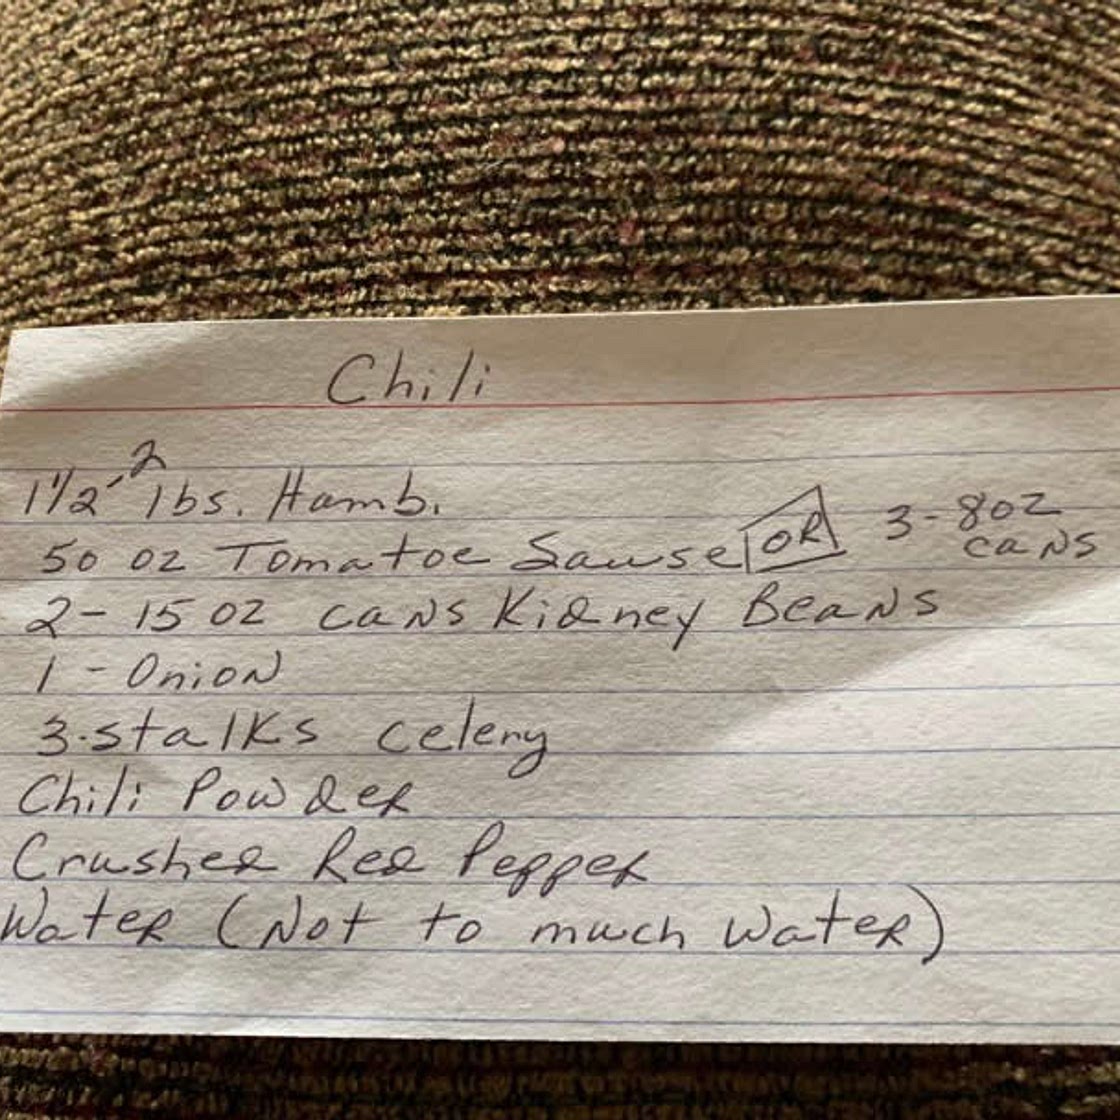 Chili
1 1/2 - 2 lbs. Hamb.
50 oz Tomatoe Sawse OR 3 - 8oz cans
2 - 15 oz cans Kidney Beans
1 - Onion
3-stalks celery
Chili Powder
Crushed Red Pepper
Water (Not to much water)